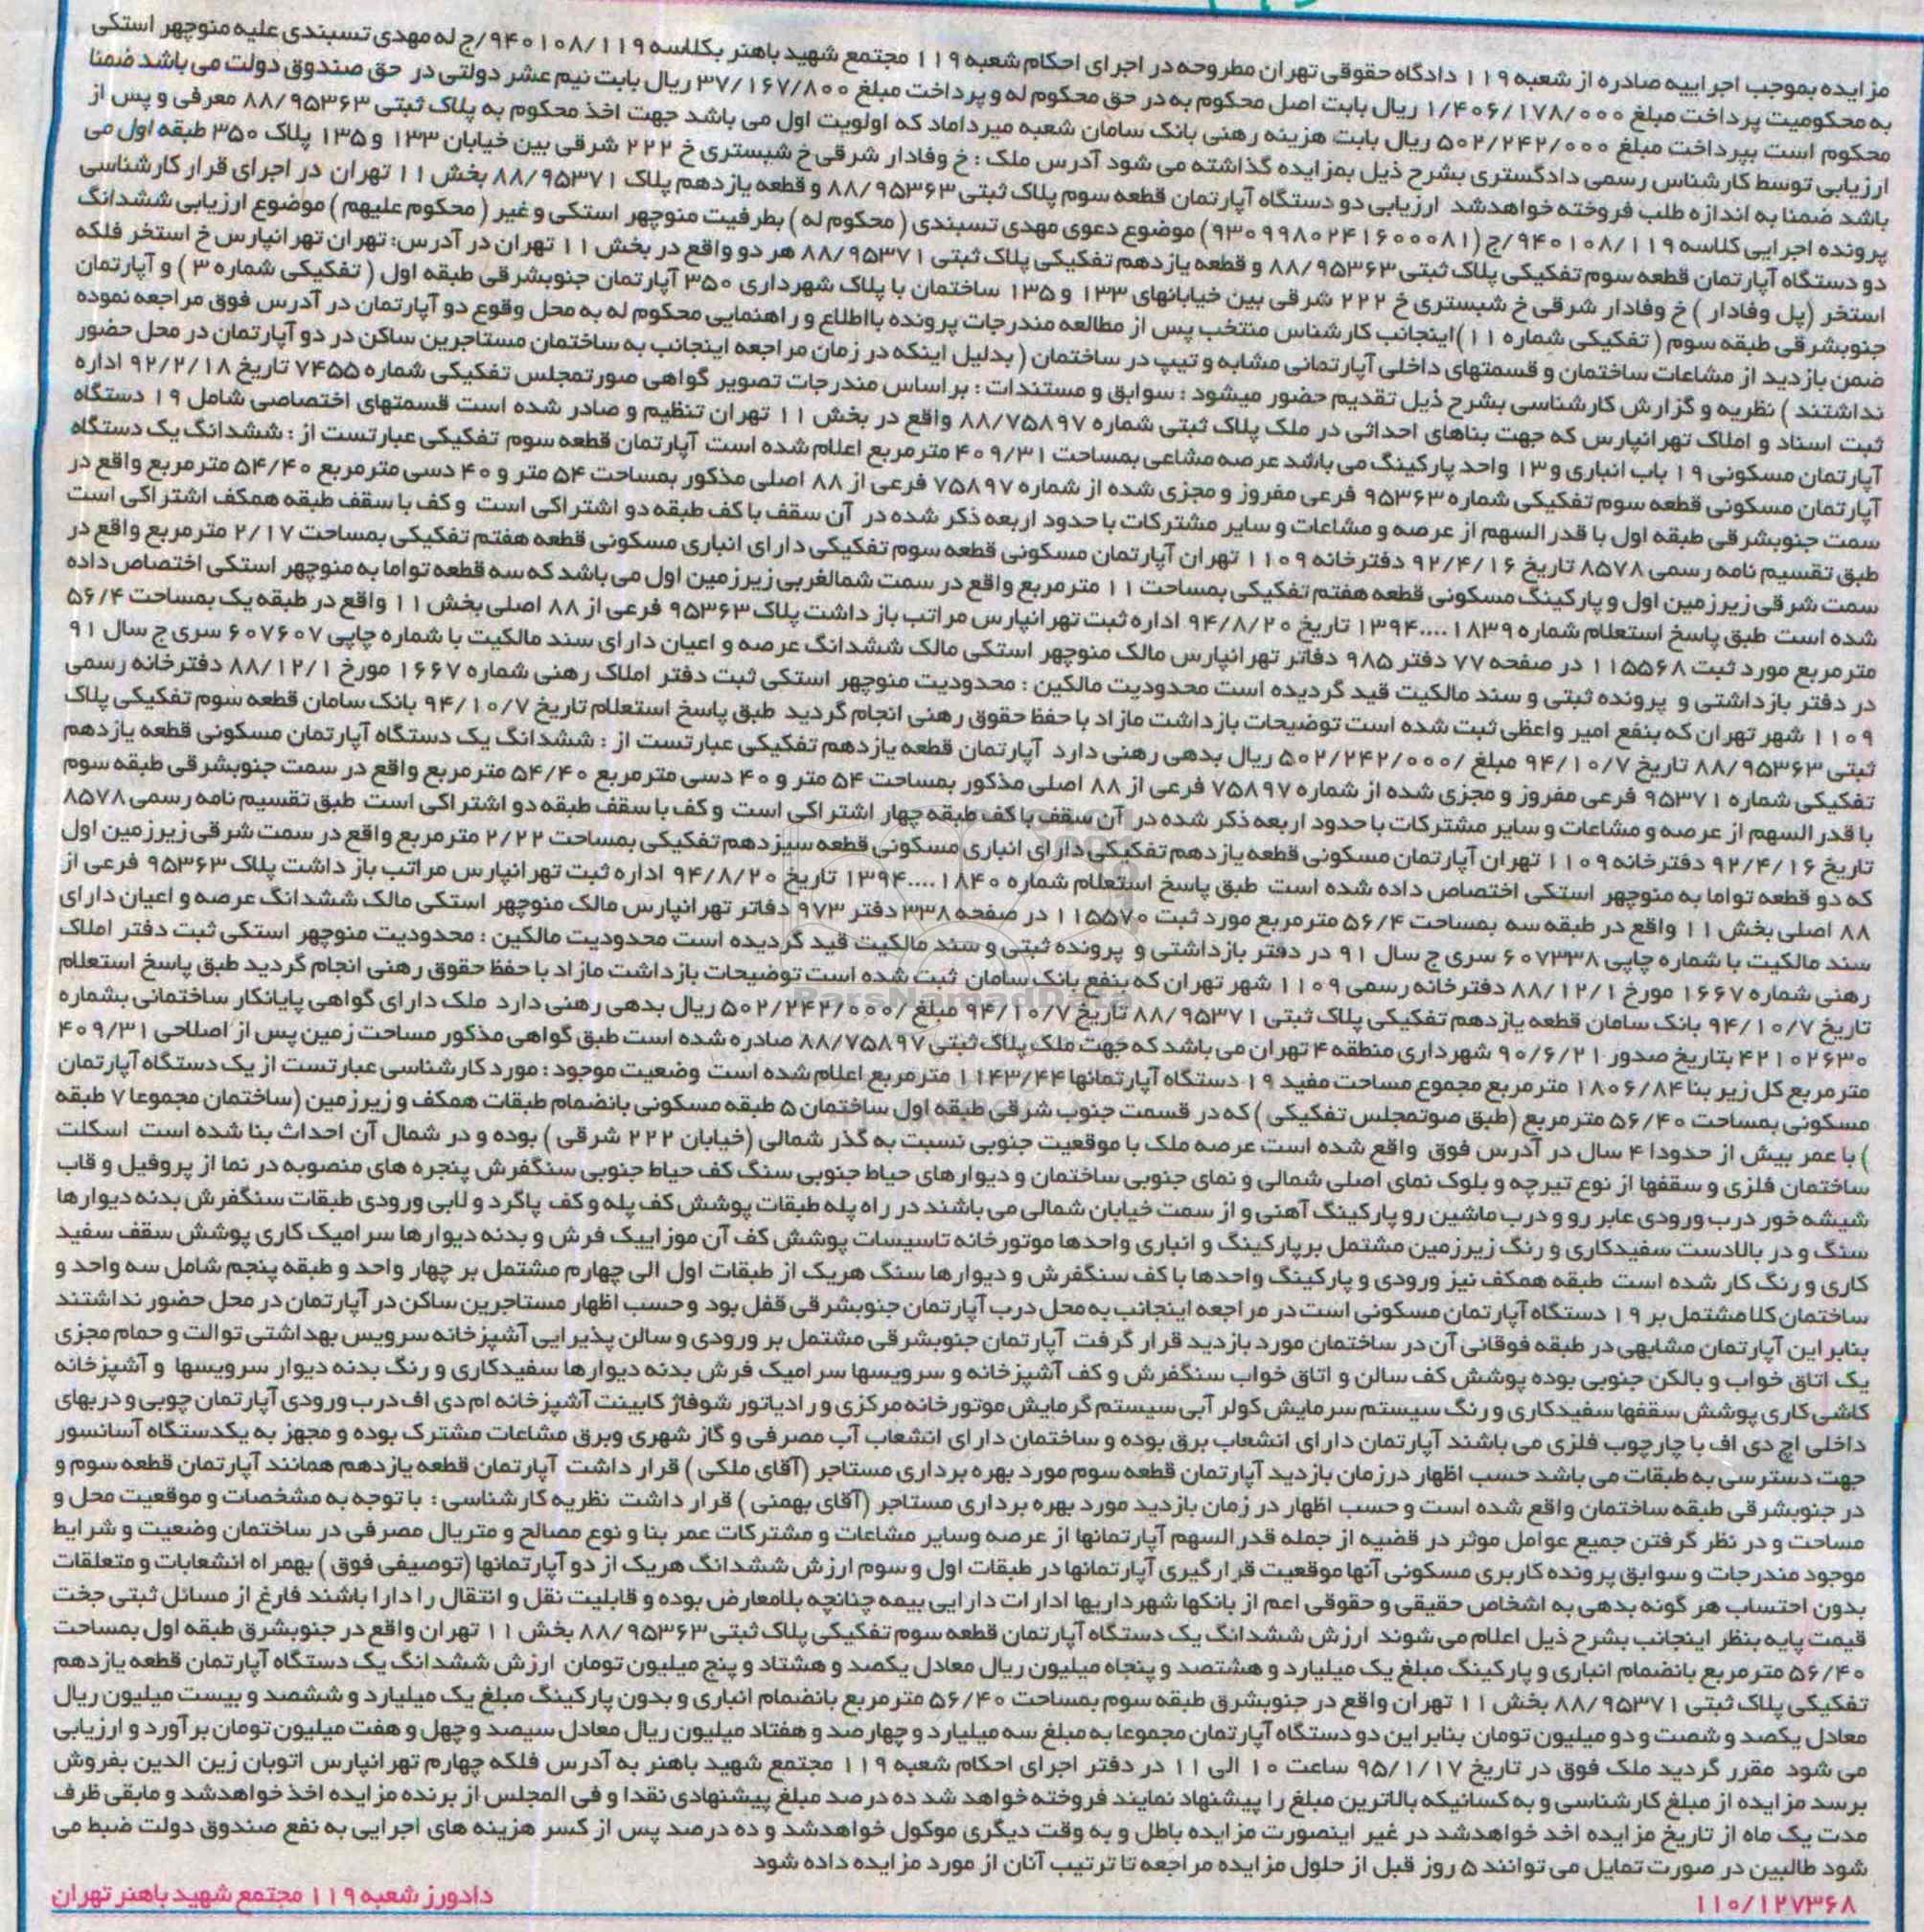 مزایده بموجب اجراییه صادره از شعبه ۱۱۹ دادگاه حقوقی تهران مطروحه در اجرای احکام شعبه ۱۱۹ مجتمع شهید باهنر بکلاسه ۹۴۰۱۰۸/۱۱۹/ج له مهدی تسبندی علیه منوچهر استکی
به محکومیت پرداخت مبلغ ۱/۴۰۶/۱۷۸/۰۰۰ ریال بابت اصل محکوم به در حق محکوم له و پرداخت مبلغ ۳۷/۱۶۷/۸۰۰ ریال بابت نیم عشر دولتی در حق صندوق دولت می باشد ضمنا
محکوم است بپرداخت مبلغ ۵۰۲/۲۴۲/۰۰۰ ریال بابت هزینه رهنی بانک سامان شعبه میرداماد که اولویت اول می باشد جهت اخذ محکوم به پلاک ثبتی ۸۸/۹۵۳۶۳ معرفی و پس از
ارزیابی توسط کارشناس رسمی دادگستری بشرح ذیل بمزایده گذاشته می شود آدرس ملک : خ وفادار شرقی خ شبستری خ ۲۲۲ شرقی بین خیابان ۱۳۳ و ۱۳۵ پلاک ۳۵۰ طبقه اول می
باشد ضمنا به اندازه طلب فروخته خواهدشد ارزیابی دو دستگاه آپارتمان قطعه سوم پلاک ثبتی ۸۸/۹۵۳۶۳ و قطعه یازدهم پلاک ۸۸/۹۵۳۷۱ بخش ۱۱ تهران در اجرای قرار کارشناسی
پرونده اجرایی کلاسه ۹۴۰۱۰۸/۱۱۹/ج (۹۳۰۹۹۸۰۲۴۱۶۰۰۰۸۱) موضوع دعوی مهدی تسبندی ( محکوم له ) بطرفیت منوچهر استکی و غیر ( محکوم علیهم ) موضوع ارزیابی ششدانگ
دو دستگاه آپارتمان قطعه سوم تفکیکی پلاک ثبتی ۸۸/۹۵۳۶۳ و قطعه یازدهم تفکیکی پلاک ثبتی ۸۸/۹۵۳۷۱ هر دو واقع در بخش ۱۱ تهران در آدرس: تهران تهرانپارس خ استخر فلکه
استخر (پل وفادار ) خ وفادار شرقی خ شبستری خ ۲۲۲ شرقی بین خیابانهای ۱۳۳ و ۱۳۵ ساختمان با پلاک شهرداری ۳۵۰ آپارتمان جنوبشرقی طبقه اول ( تفکیکی شماره ۳ ) و آپارتمان
جنوبشرقی طبقه سوم ( تفکیکی شماره ۱۱ )اینجانب کارشناس منتخب پس از مطالعه مندرجات پرونده بااطلاع و راهنمایی محکوم له به محل وقوع دو آپارتمان در آدرس فوق مراجعه نموده
ضمن بازدید از مشاعات ساختمان و قسمتهای داخلی آپارتمانی مشابه و تیپ در ساختمان ( بدلیل اینکه در زمان مراجعه اینجانب به ساختمان مستاجرین ساکن در دو آپارتمان در محل حضور
نداشتند ) نظریه و گزارش کارشناسی بشرح ذیل تقدیم حضور میشود : سوابق و مستندات : براساس مندرجات تصویر گواهی صورتمجلس تفکیکی شماره ۷۴۵۵ تاریخ ۹۲/۲/۱۸ اداره
ثبت اسناد و املاک تهرانپارس که جهت بناهای احداثی در ملک پلاک ثبتی شماره ۸۸/۷۵۸۹۷ واقع در بخش ۱۱ تهران تنظیم و صادر شده است قسمتهای اختصاصی شامل ۱۹ دستگاه
آپارتمان مسکونی ۱۹ باب انباری و ۱۳ واحد پارکینگ می باشد عرصه مشاعی بمساحت ۴۰۹/۳۱ مترمربع اعلام شده است آپارتمان قطعه سوم تفکیکی عبارتست از : ششدانگ یک دستگاه
آپارتمان مسکونی قطعه سوم تفکیکی شماره ۹۵۳۶۳ فرعی مفروز و مجزی شده از شماره ۷۵۸۹۷ فرعی از ۸۸ اصلی مذکور بمساحت ۵۴ متر و ۴۰ دسی مترمربع ۵۴/۴۰ مترمربع واقع در
سمت جنوبشرقی طبقه اول با قدرالسهم از عرصه و مشاعات و سایر مشترکات با حدود اربعه ذکر شده در آن سقف با کف طبقه دو اشتراکی است و کف با سقف طبقه همکف اشتراکی است
طبق تقسیم نامه رسمی ۸۵۷۸ تاریخ ۹۲/۴/۱۶ دفترخانه ۱۱۰۹ تهران آپارتمان مسکونی قطعه سوم تفکیکی دارای انباری مسکونی قطعه هفتم تفکیکی بمساحت ۲/۱۷ مترمربع واقع در
سمت شرقی زیرزمین اول و پارکینگ مسکونی قطعه هفتم تفکیکی بمساحت ۱۱ مترمربع واقع در سمت شمالغربی زیرزمین اول می باشد که سه قطعه تواما به منوچهر استکی اختصاص داده
شده است طبق پاسخ استعلام شماره ۱۳۹۴....۱۸۳۹ تاریخ ۹۴/۸/۲۰ اداره ثبت تهرانپارس مراتب باز داشت پلاک ۹۵۳۶۳ فرعی از ۸۸ اصلی بخش ۱۱ واقع در طبقه یک بمساحت ۵۶/۴
مترمربع مورد ثبت ۱۱۵۵۶۸ در صفحه ۷۷ دفتر ۹۸۵ دفاتر تهرانپارس مالک منوچهر استکی مالک ششدانگ عرصه و اعیان دارای سند مالکیت با شماره چاپی ۶۰۷۶۰۷ سری ج سال ۹۱
در دفتر بازداشتی و پرونده ثبتی و سند مالکیت قید گردیده است محدودیت مالکین : محدودیت منوچهر استکی ثبت دفتر املاک رهنی شماره ۱۶۶۷ مورخ ۸۸/۱۲/۱ دفترخانه رسمی
۱۱۰۹ شهر تهران که بنفع امیر واعظی ثبت شده است توضیحات بازداشت مازاد با حفظ حقوق رهنی انجام گردید طبق پاسخ استعلام تاریخ ۹۴/۱۰/۷ بانک سامان قطعه سوم تفکیکی پلاک
ثبتی ۸۸/۹۵۳۶۳ تاریخ ۹۴/۱۰/۷ مبلغ /۵۰۲/۲۴۲/۰۰۰ ریال بدهی رهنی دارد آپارتمان قطعه یازدهم تفکیکی عبارتست از : ششدانگ یک دستگاه آپارتمان مسکونی قطعه یازدهم
تفکیکی شماره ۹۵۳۷۱ فرعی مفروز و مجزی شده از شماره ۷۵۸۹۷ فرعی از ۸۸ اصلی مذکور بمساحت ۵۴ متر و ۴۰ دسی مترمربع ۵۴/۴۰ مترمربع واقع در سمت جنوبشرقی طبقه سوم
با قدرالسهم از عرصه و مشاعات و سایر مشترکات با حدود اربعه ذکر شده در آن سقف با کف طبقه چهار اشتراکی است و کف با سقف طبقه دو اشتراکی است طبق تقسیم نامه رسمی ۸۵۷۸
تاریخ ۹۲/۴/۱۶ دفترخانه ۱۱۰۹ تهران آپارتمان مسکونی قطعه یازدهم تفکیکی دارای انباری مسکونی قطعه سیزدهم تفکیکی بمساحت ۲/۲۲ مترمربع واقع در سمت شرقی زیرزمین اول
که دو قطعه تواما به منوچهر استکی اختصاص داده شده است طبق پاسخ استعلام شماره ۱۳۹۴....۱۸۴۰ تاریخ ۹۴/۸/۲۰ اداره ثبت تهرانپارس مراتب باز داشت پلاک ۹۵۳۶۳ فرعی از
۸۸ اصلی بخش ۱۱ واقع در طبقه سه بمساحت ۵۶/۴ مترمربع مورد ثبت ۱۱۵۵۷۰ در صفحه ۳۳۸ دفتر ۹۷۳ دفاتر تهرانپارس مالک منوچهر استکی مالک ششدانگ عرصه و اعیان دارای
سند مالکیت با شماره چاپی ۶۰۷۳۳۸ سری ج سال ۹۱ در دفتر بازداشتی و پرونده ثبتی و سند مالکیت قید گردیده است محدودیت مالکین : محدودیت منوچهر استکی ثبت دفتر املاک
رهنی شماره ۱۶۶۷ مورخ ۸۸/۱۲/۱ دفترخانه رسمی ۱۱۰۹ شهر تهران که بنفع بانک سامان ثبت شده است توضیحات بازداشت مازاد با حفظ حقوق رهنی انجام گردید طبق پاسخ استعلام
تاریخ ۹۴/۱۰/۷ بانک سامان قطعه یازدهم تفکیکی پلاک ثبتی ۸۸/۹۵۳۷۱ تاریخ ۹۴/۱۰/۷ مبلغ /۵۰۲/۲۴۲/۰۰۰ ریال بدهی رهنی دارد ملک دارای گواهی پایانکار ساختمانی بشماره
۴۲۱۰۲۶۳۰ بتاریخ صدور ۹۰/۶/۲۱ شهرداری منطقه ۴ تهران می باشد که جهت ملک پلاک ثبتی ۸۸/۷۵۸۹۷ صادره شده است طبق گواهی مذکور مساحت زمین پس از اصلاحی ۴۰۹/۳۱
مترمربع کل زیر بنا ۱۸۰۶/۸۴ مترمربع مجموع مساحت مفید ۱۹ دستگاه آپارتمانها ۱۱۴۳/۴۴ مترمربع اعلام شده است وضعیت موجود : مورد کارشناسی عبارتست از یک دستگاه آپارتمان
مسکونی بمساحت ۵۶/۴۰ مترمربع (طبق صوتمجلس تفکیکی ) که در قسمت جنوب شرقی طبقه اول ساختمان ۵ طبقه مسکونی بانضمام طبقات همکف و زیرزمین (ساختمان مجموعا ۷ طبقه
) با عمر بیش از حدودا ۴ سال در آدرس فوق واقع شده است عرصه ملک با موقعیت جنوبی نسبت به گذر شمالی (خیابان ۲۲۲ شرقی ) بوده و در شمال آن احداث بنا شده است اسکلت
ساختمان فلزی و سقفها از نوع تیرچه و بلوک نمای اصلی شمالی و نمای جنوبی ساختمان و دیوارهای حیاط جنوبی سنگ کف حیاط جنوبی سنگفرش پنجره های منصوبه در نما از پروفیل و قاب
شیشه خور درب ورودی عابر رو و درب ماشین رو پارکینگ آهنی و از سمت خیابان شمالی می باشند در راه پله طبقات پوشش کف پله و کف پاگرد و لابی ورودی طبقات سنگفرش بدنه دیوارها
سنگ و در بالادست سفیدکاری و رنگ زیرزمین مشتمل برپارکینگ و انباری واحدها موتورخانه تاسیسات پوشش کف آن موزاییک فرش و بدنه دیوارها سرامیک کاری پوشش سقف سفید
کاری و رنگ کار شده است طبقه همکف نیز ورودی و پارکینگ واحدها با کف سنگفرش و دیوارها سنگ هریک از طبقات اول الی چهارم مشتمل بر چهار واحد و طبقه پنجم شامل سه واحد و
ساختمان کلا مشتمل بر ۱۹ دستگاه آپارتمان مسکونی است در مراجعه اینجانب به محل درب آپارتمان جنوبشرقی قفل بود و حسب اظهار مستاجرین ساکن در آپارتمان در محل حضور نداشتند
بنابراین آپارتمان مشابهی در طبقه فوقانی آن در ساختمان مورد بازدید قرار گرفت آپارتمان جنوبشرقی مشتمل بر ورودی و سالن پذیرایی آشپزخانه سرویس بهداشتی توالت و حمام مجزی
یک اتاق خواب و بالکن جنوبی بوده پوشش کف سالن و اتاق خواب سنگفرش و کف آشپزخانه و سرویسها سرامیک فرش بدنه دیوارها سفیدکاری و رنگ بدنه دیوار سرویسها و آشپزخانه
کاشی کاری پوشش سقفها سفیدکاری و رنگ سیستم سرمایش کولر آبی سیستم گرمایش موتورخانه مرکزی و رادیاتور شوفاژ کابینت آشپزخانه ام دی اف درب ورودی آپارتمان چوبی و دربهای
داخلی اچ دی اف با چارچوب فلزی می باشند آپارتمان دارای انشعاب برق بوده و ساختمان دارای انشعاب آب مصرفی و گاز شهری وبرق مشاعات مشترک بوده و مجهز به یکدستگاه آسانسور
جهت دسترسی به طبقات می باشد حسب اظهار درزمان بازدید آپارتمان قطعه سوم مورد بهره برداری مستاجر (آقای ملکی ) قرار داشت آپارتمان قطعه یازدهم همانند آپارتمان قطعه سوم و
در جنوبشرقی طبقه ساختمان واقع شده است و حسب اظهار در زمان بازدید مورد بهره برداری مستاجر (آقای بهمنی ) قرار داشت نظریه کارشناسی : با توجه به مشخصات و موقعیت محل و
مساحت و در نظر گرفتن جمیع عوامل موثر در قضیه از جمله قدرالسهم آپارتمانها از عرصه وسایر مشاعات و مشترکات عمر بنا و نوع مصالح و متریال مصرفی در ساختمان وضعیت و شرایط
موجود مندرجات و سوابق پرونده کاربری مسکونی آنها موقعیت قرارگیری آپارتمانها در طبقات اول و سوم ارزش ششدانگ هریک از دو آپارتمانها (توصیفی فوق ) بهمراه انشعابات و متعلقات
بدون احتساب هر گونه بدهی به اشخاص حقیقی و حقوقی اعم از بانکها شهرداریها ادارات دارایی بیمه چنانچه بلامعارض بوده و قابلیت نقل و انتقال را دارا باشند فارغ از مسائل ثبتی جخت
قیمت پایه بنظر اینجانب بشرح ذیل اعلام می شوند ارزش ششدانگ یک دستگاه آپارتمان قطعه سوم تفکیکی پلاک ثبتی ۸۸/۹۵۳۶۳ بخش ۱۱ تهران واقع در جنوبشرق طبقه اول بمساحت
۵۶/۴۰ مترمربع بانضمام انباری و پارکینگ مبلغ یک میلیارد و هشتصد و پنجاه میلیون ریال معادل یکصد و هشتاد و پنج میلیون تومان ارزش ششدانگ یک دستگاه آپارتمان قطعه یازدهم
تفکیکی پلاک ثبتی ۸۸/۹۵۳۷۱ بخش ۱۱ تهران واقع در جنوبشرق طبقه سوم بمساحت ۵۶/۴۰ مترمربع بانضمام انباری و بدون پارکینگ مبلغ یک میلیارد و ششصد و بیست میلیون ریال
معادل یکصد و شصت و دو میلیون تومان بنابراین دو دستگاه آپارتمان مجموعا به مبلغ سه میلیارد و چهارصد و هفتاد میلیون ریال معادل سیصد و چهل و هفت میلیون تومان برآورد و ارزیابی
می شود مقرر گردید ملک فوق در تاریخ ۹۵/۱/۱۷ ساعت ۱۰ الی ۱۱ در دفتر اجرای احکام شعبه ۱۱۹ مجتمع شهید باهنر به آدرس فلکه چهارم تهرانپارس اتوبان زین الدین بفروش
برسد مزایده از مبلغ کارشناسی و به کسانیکه بالاترین مبلغ را پیشنهاد نمایند فروخته خواهد شد ده درصد مبلغ پیشنهادی نقدا و فی المجلس از برنده مزایده اخذ خواهدشد و مابقی ظرف
مدت یک ماه از تاریخ مزایده اخد خواهدشد در غیر اینصورت مزایده باطل و به وقت دیگری موکول خواهدشد و ده درصد پس از کسر هزینه های اجرایی به نفع صندوق دولت ضبط می
شود طالبین در صورت تمایل می توانند ۵ روز قبل از حلول مزایده مراجعه تا ترتیب آنان از مورد مزایده داده شود
۱۱۰/۱۲۷۳۶۸
دادورز شعبه ۱۱۹ مجتمع شهید باهنر تهران
ParsNamadData